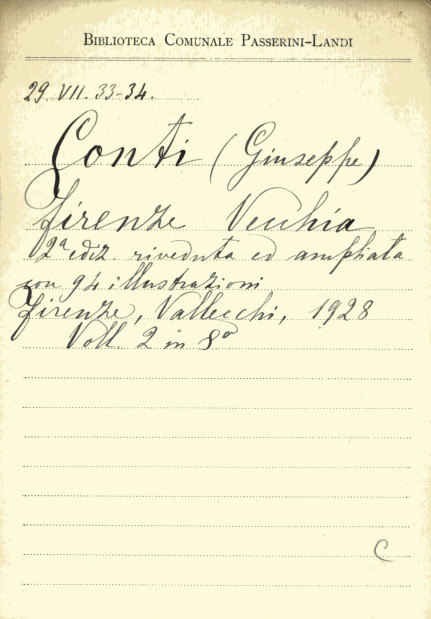 BIBLIOTECA COMUNALE PASSERINI-LANDI
29 VII. 33-34.
Conti (Giuseppe)
Firenze Vecchia
2ª ediz. riveduta ed ampliata
con 94 illustrazioni
Firenze, Vallecchi, 1928
Voll. 2 in 8º
C